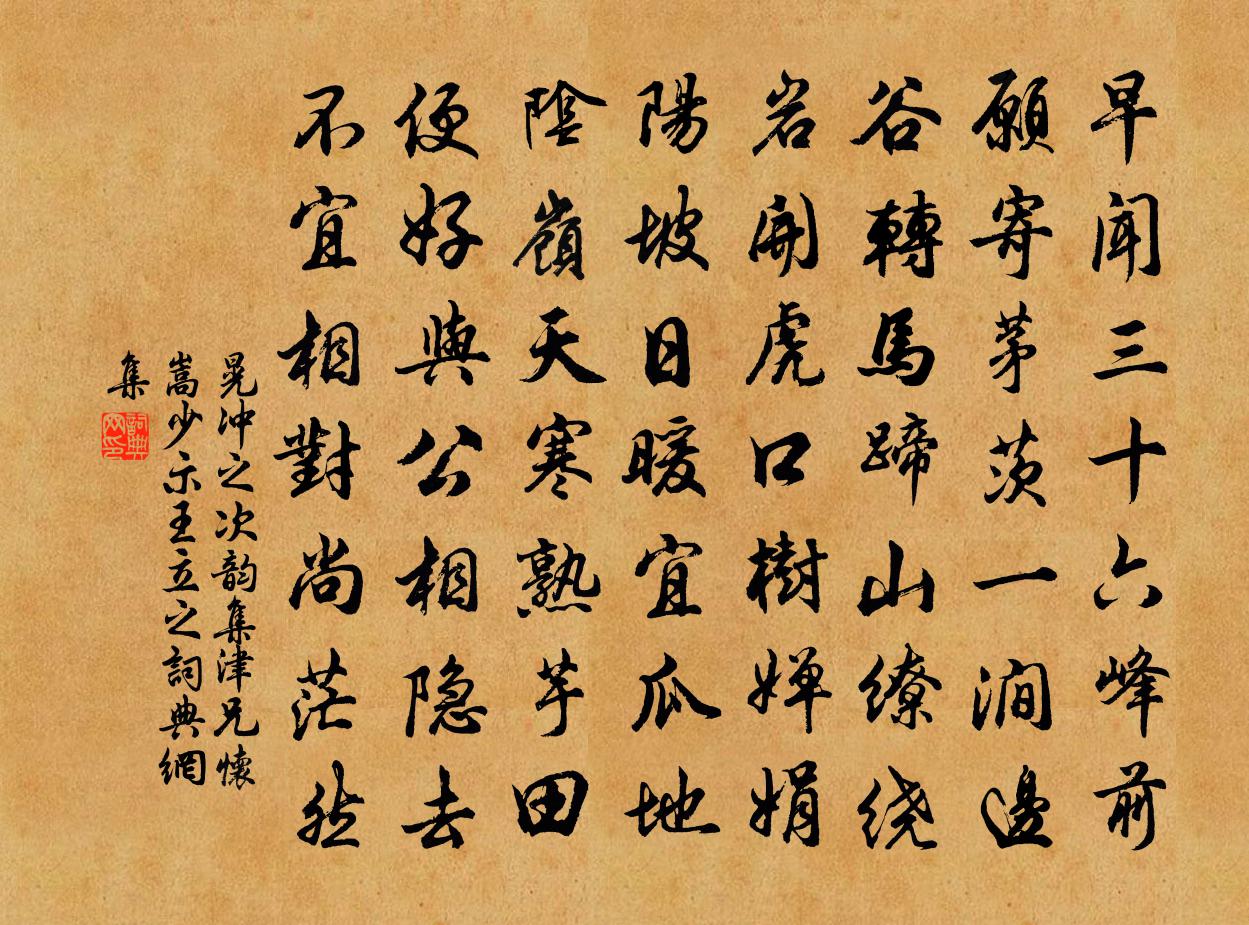 早聞三十六峰前
願寄茅茨一澗邊
谷轉馬蹄山繚绕
岩開虎口樹嬋娟
陽坡日暖宜瓜地
陰嶺天寒熟芋田
便好與公相隐去
不宜相對尚茫然
晃冲之次韵集津兄懷
嵩少示王立之詞典網
集
詞典网印